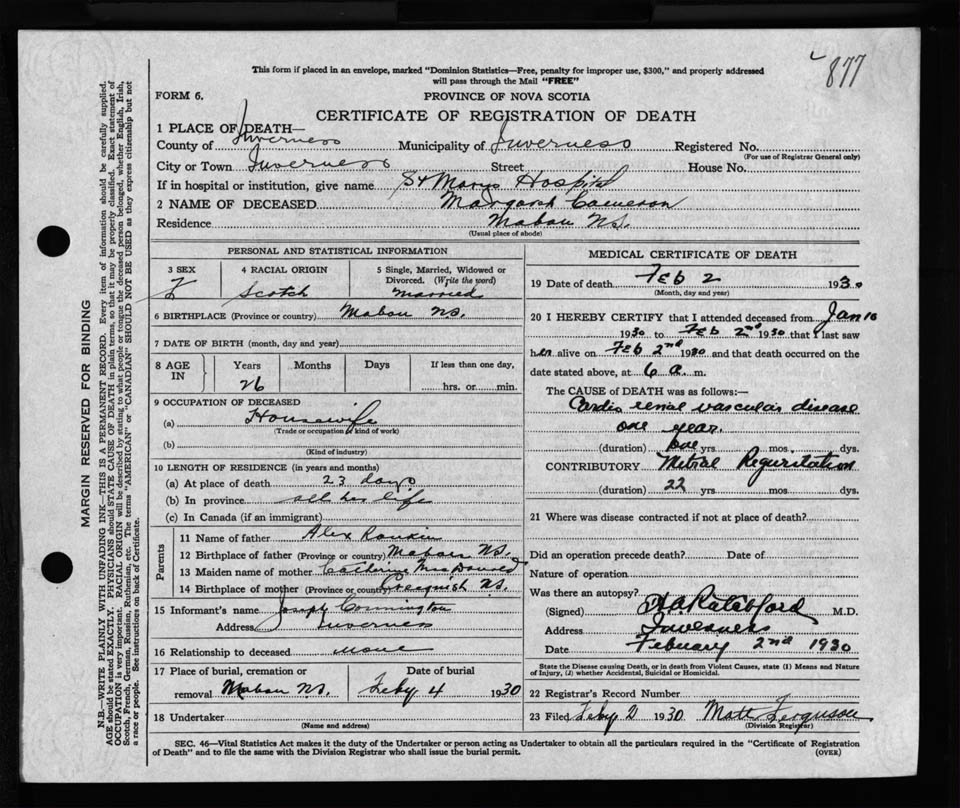 877
This form if placed in an envelope, marked "Dominion Statistics—Free, penalty for improper use, $300," and properly addressed
will pass through the Mail "FREE"
FORM 6.
PROVINCE OF NOVA SCOTIA
CERTIFICATE OF REGISTRATION OF DEATH
1 PLACE OF DEATH—
County of Inverness Municipality of Inverness Registered No.
(For use of Registrar General only)
City or Town Inverness Street House No.
If in hospital or institution, give name St Marys Hospital
2 NAME OF DECEASED Margaret Cameron
Residence Mabou N.S.
(Usual place of abode)
PERSONAL AND STATISTICAL INFORMATION
3 SEX 4 RACIAL ORIGIN 5 Single, Married, Widowed or
Divorced. (Write the word)
F Scotch Married
6 BIRTHPLACE (Province or country) Mabou N.S.
7 DATE OF BIRTH (month, day and year)
8 AGE IN Years Months Days If less than one day,
26 hrs. or min.
9 OCCUPATION OF DECEASED
(a) Housewife
(Trade or occupation / kind of work)
(b)
(Kind of industry)
10 LENGTH OF RESIDENCE (in years and months)
(a) At place of death 23 days
(b) In province all her life
(c) In Canada (if an immigrant)
Parents
11 Name of father Alex Rankin
12 Birthplace of father (Province or country) Mabou N.S.
13 Maiden name of mother Catherine McDonald
14 Birthplace of mother (Province or country) Creignish N.S.
15 Informant's name Joseph
Address Inverness
16 Relationship to deceased none
17 Place of burial, cremation or Date of burial
removal Mabou N.S. Feby 4 1930
18 Undertaker
(Name and address)
MEDICAL CERTIFICATE OF DEATH
19 Date of death Feb 2 1930
(Month, day and year)
20 I HEREBY CERTIFY that I attended deceased from Jan 10
1930 to Feb 2nd 1930 that I last saw
her alive on Feb 2nd 1930 and that death occurred on the
date stated above, at 6 a. m.
The CAUSE of DEATH was as follows:
Cardio renal vascular disease
one year.
(duration) one yrs mos dys.
CONTRIBUTORY Mitral Reguritation
(duration) 22 yrs mos dys.
21 Where was disease contracted if not at place of death?
Did an operation precede death? Date of
Nature of operation
Was there an autopsy?
(Signed) Ratchford M.D.
Address Inverness
Date February 2nd 1930
State the Disease causing Death, or in death from Violent Causes, state (1) Means and Nature
of Injury, (2) whether Accidental, Suicidal or Homicidal.
22 Registrar's Record Number
23 Filed Feby 2 1930 Matt Ferguson
(Division Registrar)
SEC. 46—Vital Statistics Act makes it the duty of the Undertaker or person acting as Undertaker to obtain all the particulars required in the "Certificate of Registration
of Death" and to file the same with the Division Registrar who shall issue the burial permit.
(OVER)
MARGIN RESERVED FOR BINDING
N.B.—WRITE PLAINLY WITH UNFADING INK—THIS IS A PERMANENT RECORD. Every item of information should be carefully supplied.
AGE should be stated EXACTLY. PHYSICIANS should STATE CAUSE OF DEATH in plain terms, so that it may be properly classified. Exact statement of
OCCUPATION is very important. RACIAL ORIGIN will be described by stating to what people or tongue the deceased person belonged, whether English, Irish,
Scotch, French, German, Russian, Ruthenian, etc. The terms "AMERICAN" or "CANADIAN" SHOULD NOT BE USED as they express citizenship but not
a race or people. See instructions on back of Certificate.